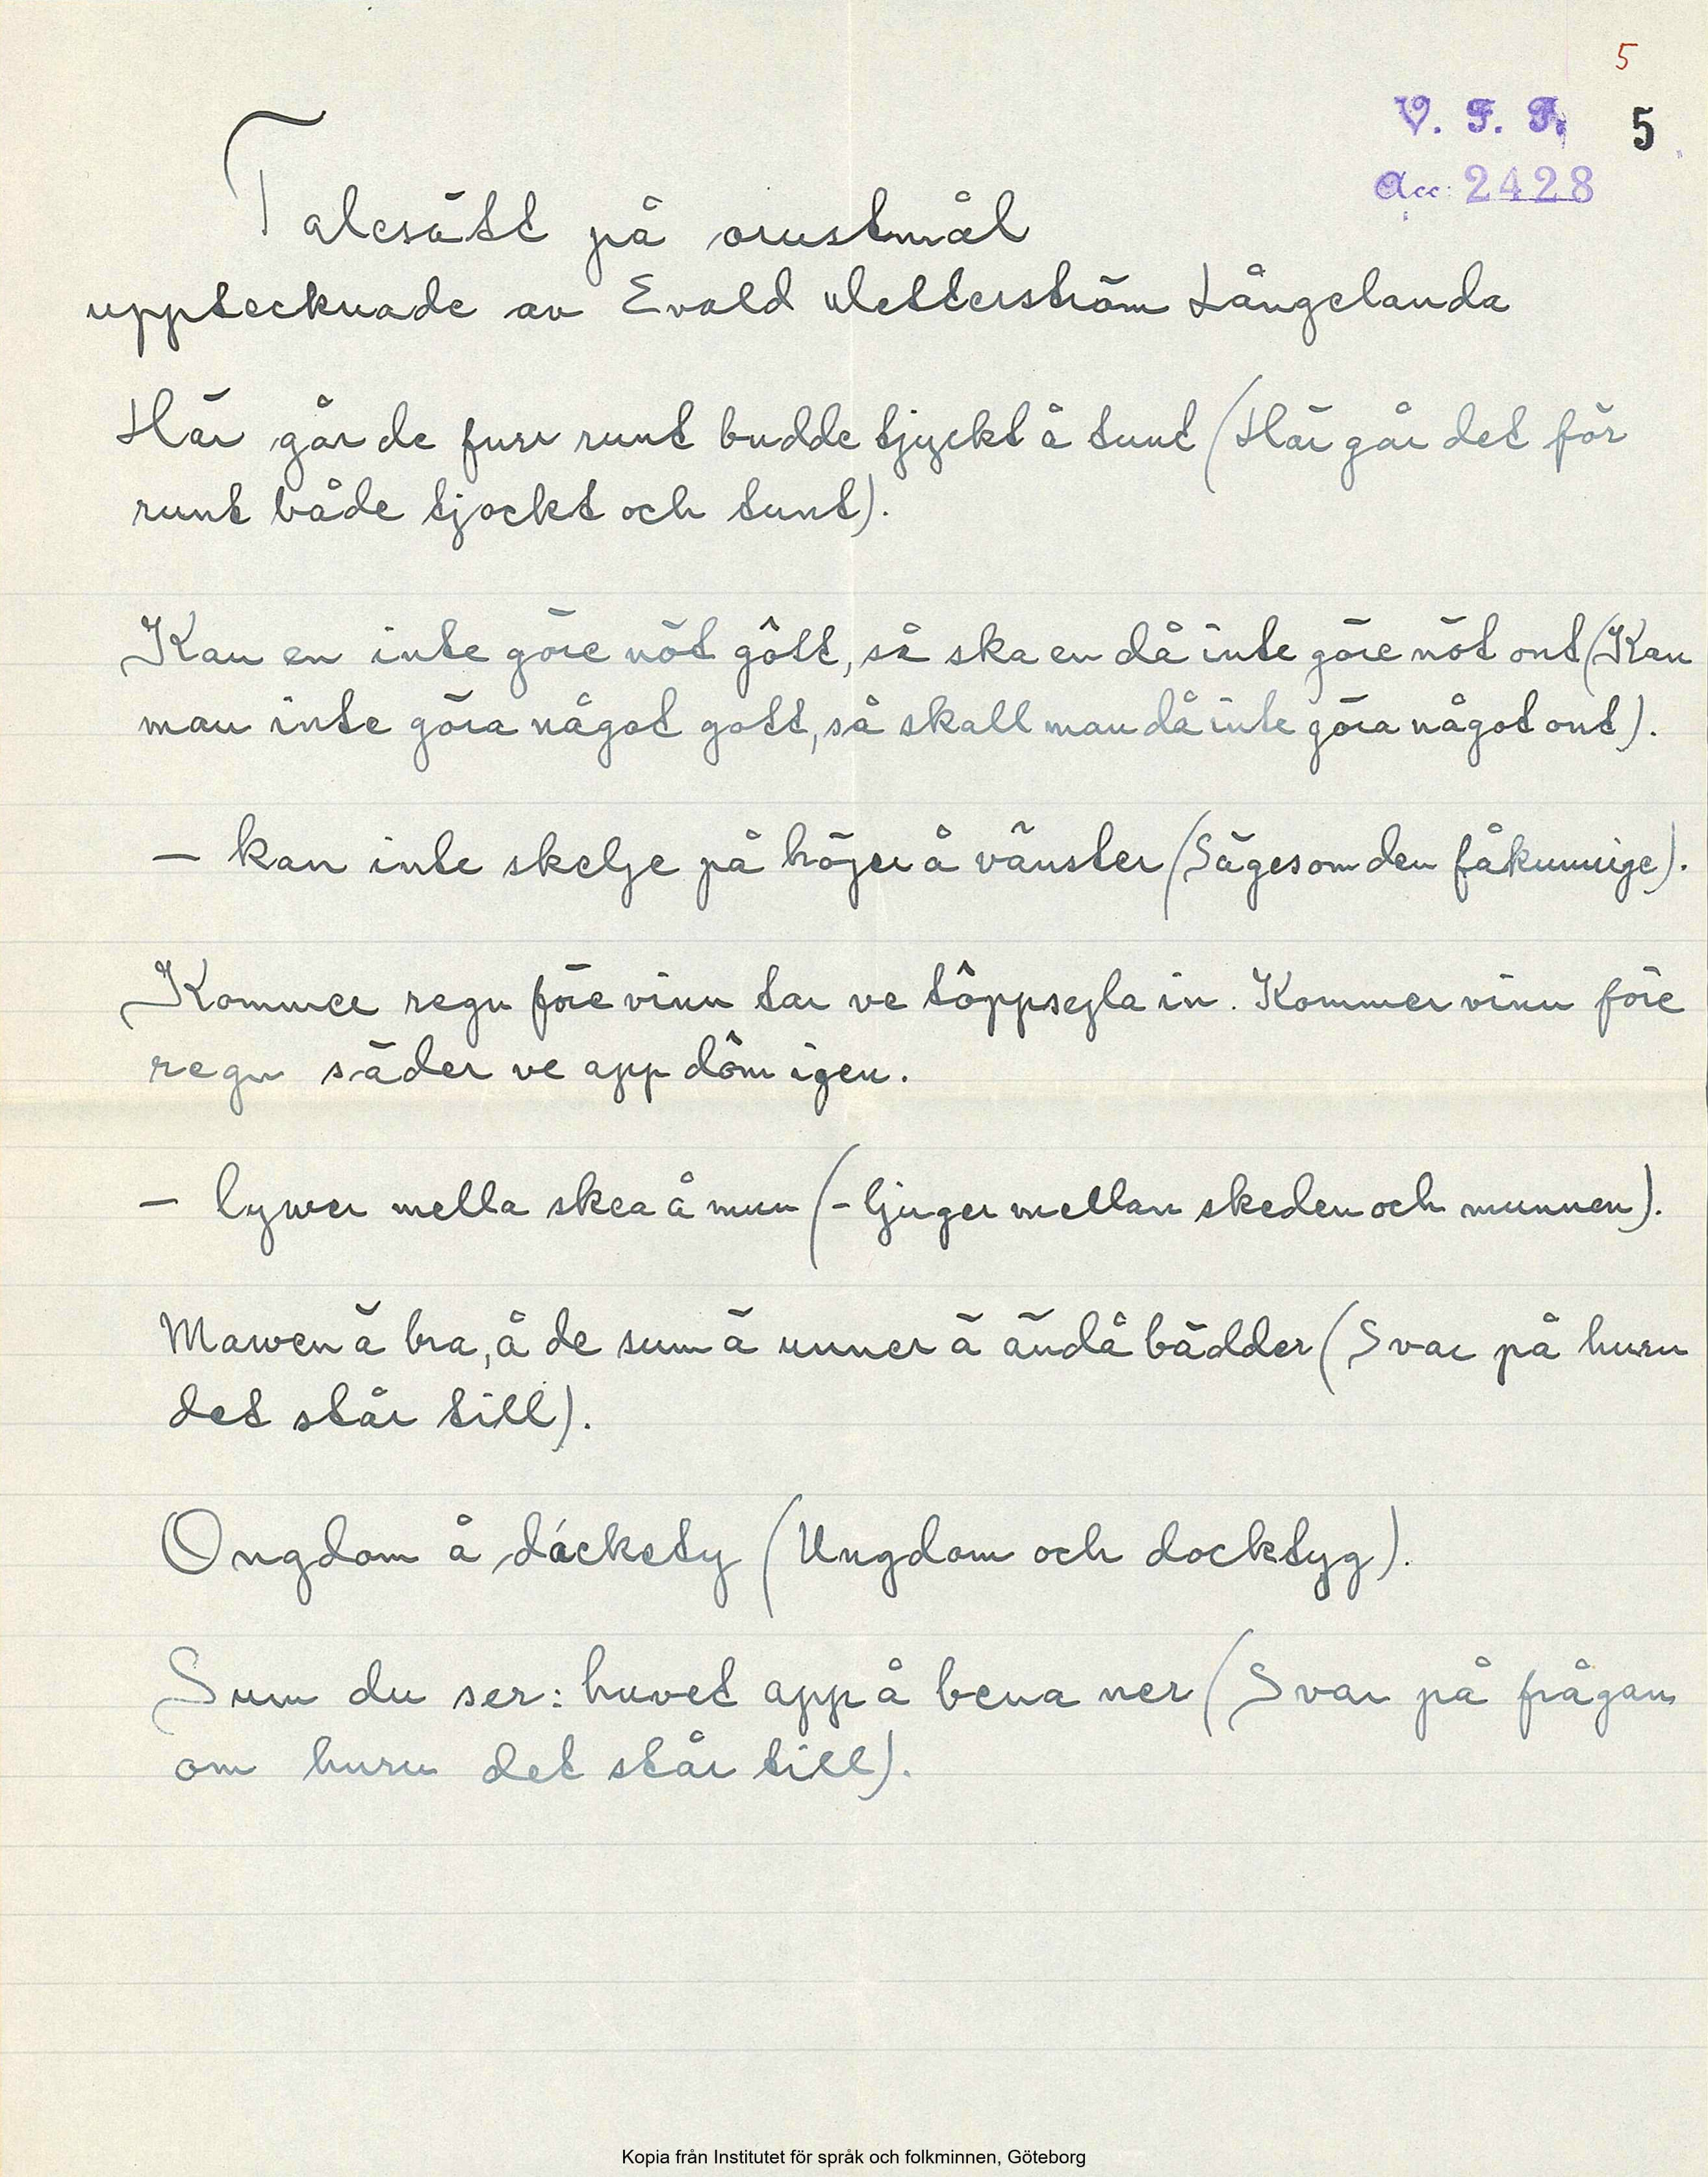 5
V. F. F. 5
Acc: 2428
Talesätt på orustmål
upptecknade av Evald Wetterström Långelanda
Här går de furr runt budde tjyckt å tunt (Här går det för
runt både tjockt och tunt).
Kan en inte göre nöt gôtt, så ska en då inte göre nöt ont (Kan
man inte göra något gott, så skall man då inte göra något ont).
— kan inte skelje på höjer å vänster (Säges om den fåkunnige).
Kommer regn före vinn tar ve tôppsejla in. Kommer vinn före
regn säder ve app dôm igen.
— lywer mella skea å mun (- ljuger mellan skeden och munnen).
Mawen ä bra, å de sum ä unner ä ändå bädder (Svar på huru
det står till).
Ongdom å dåckety (Ungdom och docktyg).
Sum du ser: huvet app å bena ner (Svar på frågan
om huru det står till).
Kopia från Institutet för språk och folkminnen, Göteborg